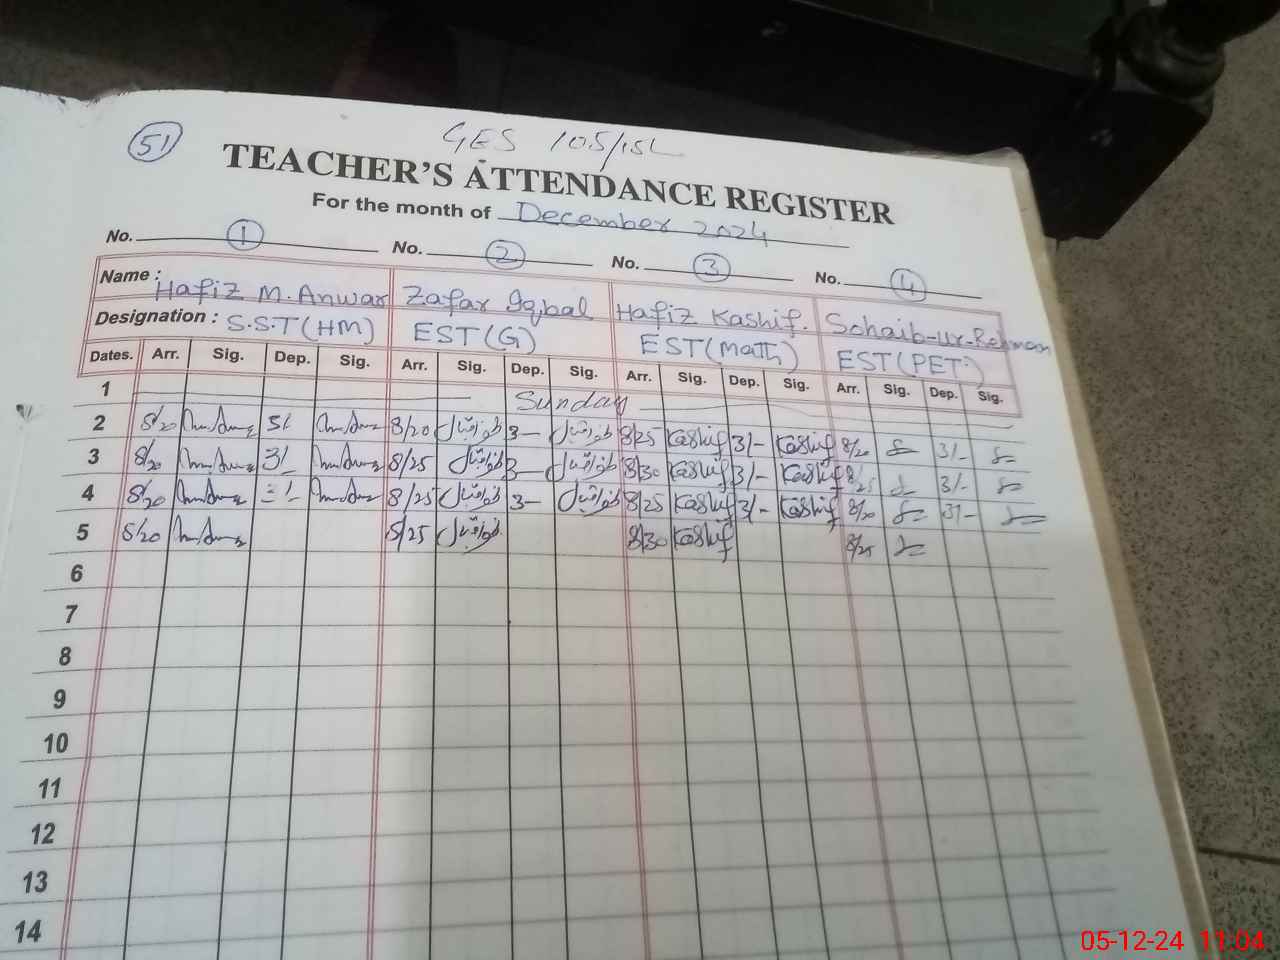 51
GES 105/15L
TEACHER'S ATTENDANCE REGISTER
For the month of December 2024
No. 1 No. 2 No. 3 No. 4
Name : Hafiz M. Anwar Zafar Iqbal Hafiz Kashif. Sohaib-ur-Rehman
Designation : S.S.T (HM) EST (G) EST (Math) EST (PET)
Dates. Arr. Sig. Dep. Sig. Arr. Sig. Dep. Sig. Arr. Sig. Dep. Sig. Arr. Sig. Dep. Sig.
1 Sunday
2 8/20 3/- 8/20 ظفر اقبال 3- ظفر اقبال 8/25 Kashif 3/- Kashif 8/20 3/-
3 8/20 3/- 8/25 ظفر اقبال 3- ظفر اقبال 8/30 Kashif 3/- Kashif 8/25 3/-
4 8/20 3/- 8/25 ظفر اقبال 3- ظفر اقبال 8/25 Kashif 3/- Kashif 8/20 3/-
5 8/20 8/25 ظفر اقبال 8/30 Kashif 8/25
6
7
8
9
10
11
12
13
14
05-12-24 11:04